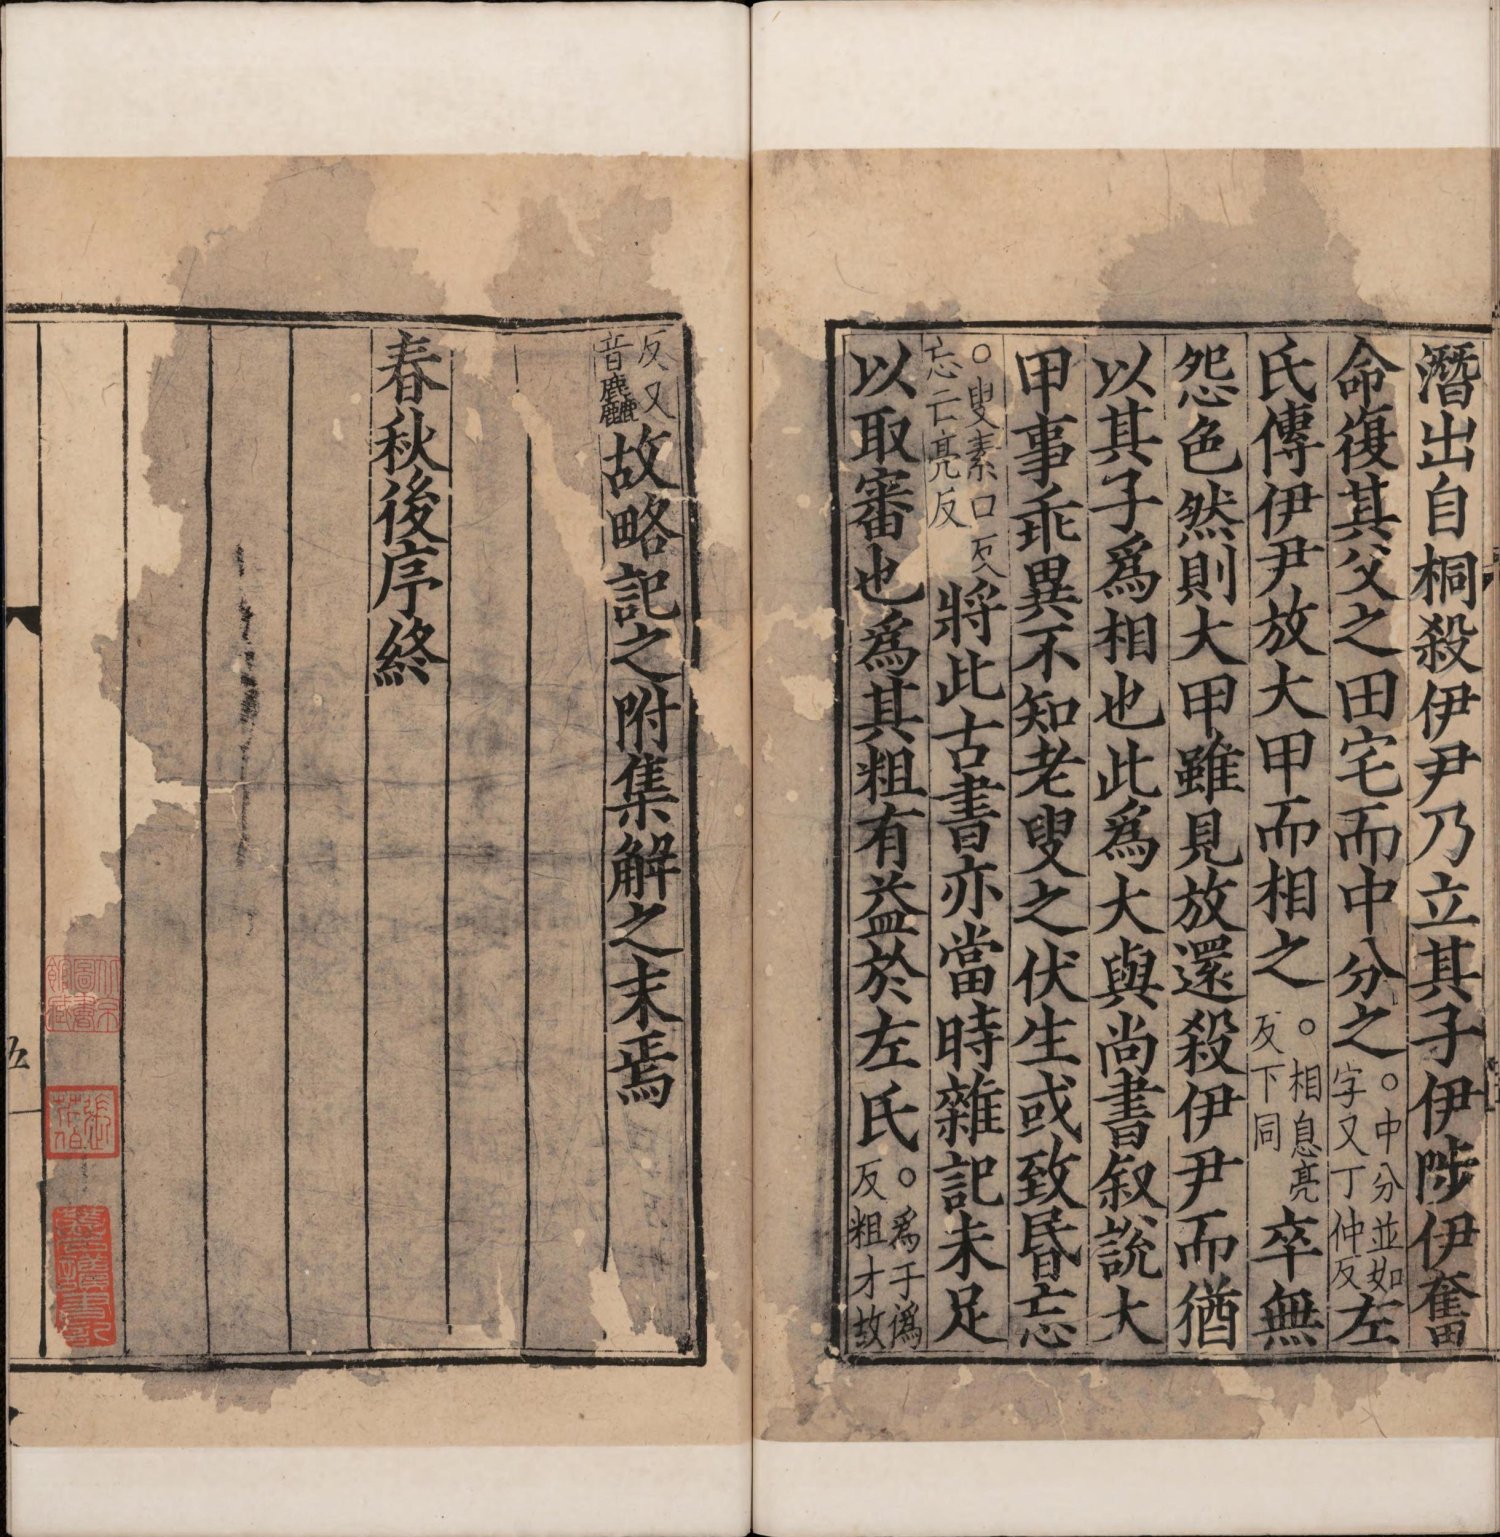 潛出自桐殺伊尹乃立其子伊陟伊奮
命復其父之田宅而中分之○中分並如字又丁仲反左
氏傳伊尹放大甲而相之○相息亮反下同卒無
怨色然則大甲雖見放還殺伊尹而猶
以其子爲相也此爲大與尚書叙說大
甲事乖異不知老叟之伏生或致昬忘
○叟素口反忘亡亮反將此古書亦當時雜記未足
以取審也爲其粗有益於左氏○爲于僞反粗才故
反又音麤故略記之附集解之末焉
春秋後序終
五
北京圖書館藏